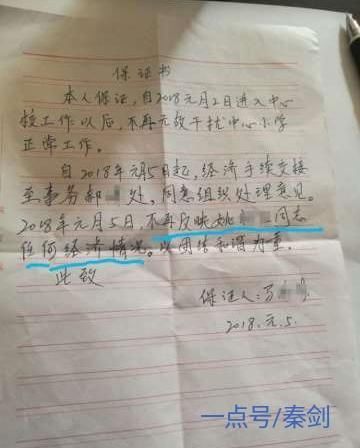 保证书
本人保证,自2018元月2日进入中心
校工作以后,不再无故干扰中心小学
正常工作。
自2018年元月5日起,经济手续交接
至事务郝处,同意组织处理意见。
2018年元月5日,不再反映姚同志
任何经济情况。以团结和谐为重。
此致
保证人:
2018.元.5.
一点号/秦剑